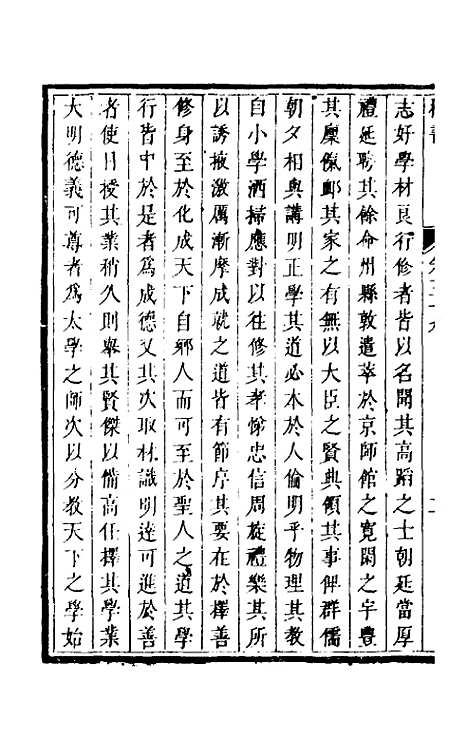 志好學材良行修者皆以名聞其高蹈之士朝廷當厚
禮延聘其餘命州縣敦遣萃於京師館之寬閑之宇豊
其廩餼卹其家之有無以大臣之賢典領其事俾群儒
朝夕相與講明正學其道必本於人倫明乎物理其教
自小學洒掃應對以往修其孝悌忠信周旋禮樂其所
以誘掖激厲漸摩成就之道皆有節序其要在於擇善
修身至於化成天下自鄉人而可至於聖人之道其學
行皆中於是者為成德又其次取材識明達可進於善
者使日授其業稍久則舉其賢傑以備高任擇其學業
大明德義可尊者為太學之師次以分教天下之學始